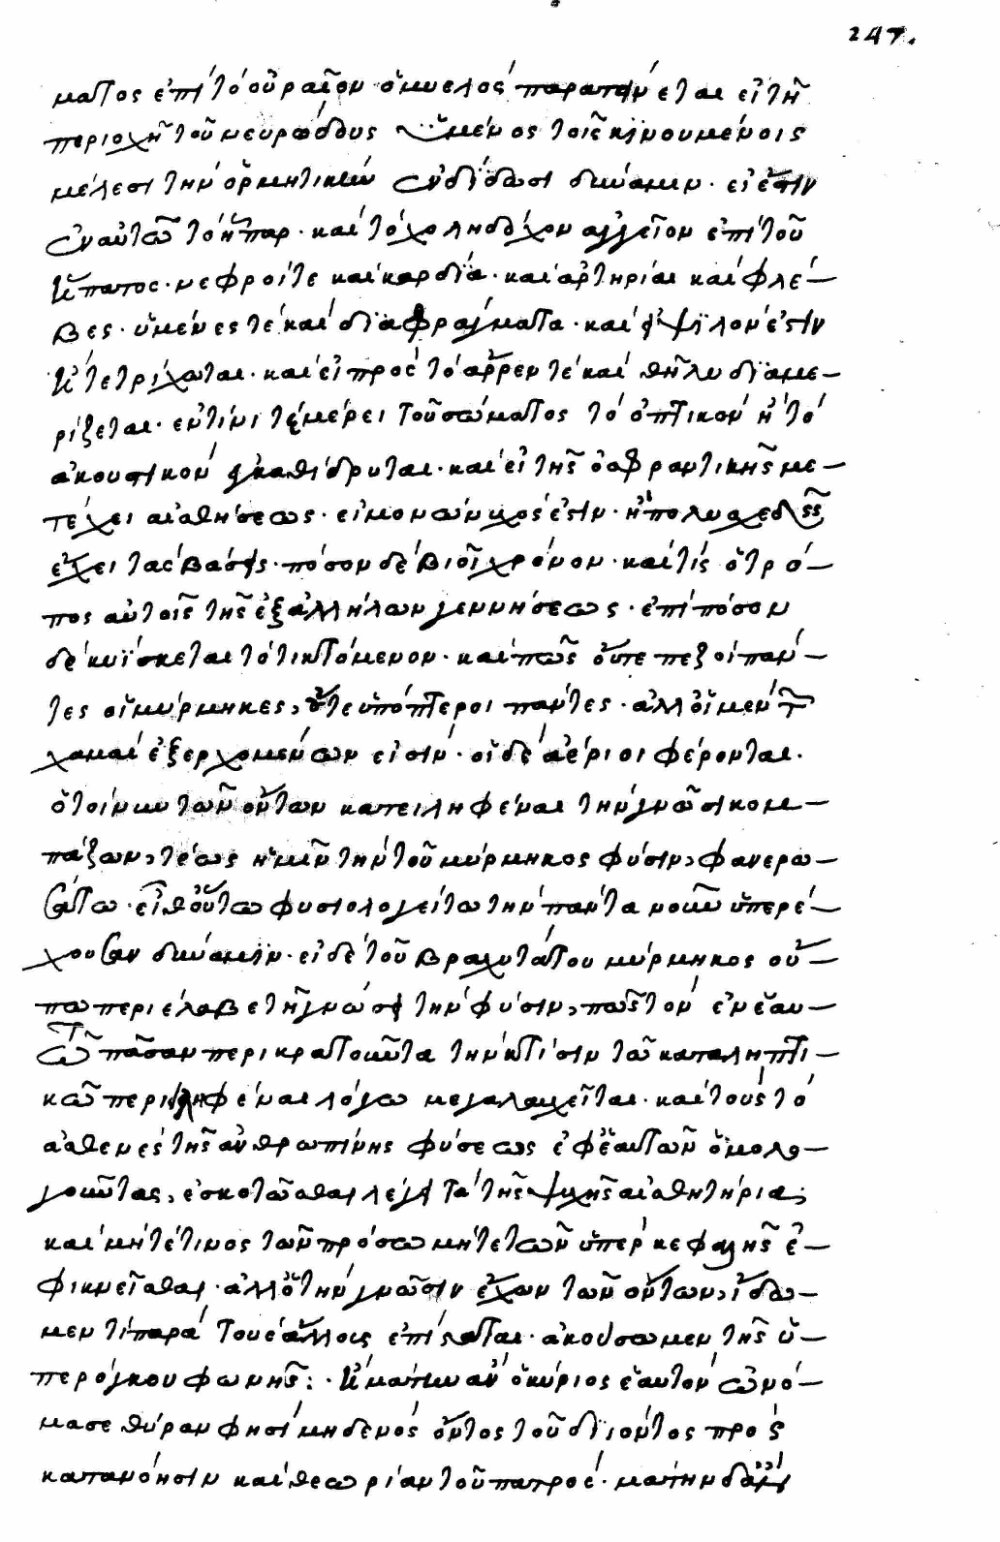 247.
ματος ἐπὶ τὸ οὐραῖον ὁ μυελὸς παρατείνεται· εἰ τῇ
περιοχῇ τοῦ νευρώδους ὑμένος τοῖς κινουμένοις
μέλεσι τὴν ὁρμητικὴν ἐνδίδωσι δύναμιν· εἰ ἔστιν
ἐν αὐτῷ τὸ ἧπαρ· καὶ τὸ χοληδόχον ἀγγεῖον ἐπὶ τοῦ
ἥπατος· νεφροί τε καὶ καρδία· καὶ ἀρτηρίαι καὶ φλέ-
βες· ὑμένες τὲ καὶ διαφράγματα· καὶ εἰ ψιλόν ἐστιν
ἢ τετρίχωται· καὶ εἰ πρὸς τὸ ἄρρεν τὲ καὶ θῆλυ διαμε-
ρίζεται. ἐν τίνι τε μέρει τοῦ σώματος τὸ ὀπτικὸν ἢ τὸ
ἀκουστικὸν ἐγκαθίδρυται· καὶ εἰ τῆς ὀσφραντικῆς με-
τέχει αἰσθήσεως· εἰ μονώνυχός ἐστιν· ἢ πολυσχεδεῖς
ἔχει τὰς βάσεις· πόσον δὲ βιοῖ χρόνον· καὶ τίς ὁ τρό-
πος αὐτοῖς τῆς ἐξ ἀλλήλων γεννήσεως· ἐπὶ πόσον
δὲ κυΐσκεται τὸ τικτόμενον· καὶ πῶς οὔτε πεζοὶ πάν-
τες οἱ μύρμηκες, οὔτε ὑπόπτεροι πάντες· ἀλλ οἱ μὲν τῶν
χαμαὶ ἐξερχομένων εἰσίν· οἱ δὲ ἀέριοι φέρονται.
ὁ τοίνυν τῶν ὄντων κατειληφέναι τὴν γνῶσιν κομ-
πάζων, τέως ἡμῖν τὴν τοῦ μύρμηκος φύσιν, φανερω-
σάτω· εἶθ οὕτω φυσιολογείτω τὴν πάντα νοῦν ὑπερέ-
χουσαν δύναμιν· εἰ δὲ τοῦ βραχυτάτου μύρμηκος οὔ-
πω περιέλαβε τῇ γνώσει τὴν φύσιν, πῶς τὸν ἐν ἑαυ-
τῷ πᾶσαν περικρατοῦντα τὴν κτίσιν τῷ καταληπτι-
κῷ περιειληφέναι λόγῳ μεγαλαυχεῖται· καὶ τοὺς τὸ
ἀσθενὲς τῆς ἀνθρωπίνης φύσεως ἐφ ἑαυτῶν ὁμολο-
γοῦντας, ἐσκοτῶσθαι λέγει τὰ τῆς ψυχῆς αἰσθητήρια,
καὶ μήτέ τινος τῶν πρόσω μήτε τῶν ὑπὲρ κεφαλῆς ἐ-
φικνεῖσθαι· ἀλλ ὁ τὴν γνῶσιν ἔχων τῶν ὄντων, ἴδω-
μεν τί παρὰ τοὺς ἄλλους ἐπίσταται· ἀκούσωμεν τῆς ὑ-
περόγκου φωνῆς: · ἢ μάτην ἂν ὁ κύριος ἑαυτὸν ὠνό-
μασε θύραν φησὶ μηδενὸς ὄντος τοῦ διϊόντος πρὸς
κατανόησιν καὶ θεωρίαν τοῦ πατρός· μάτην δὲ